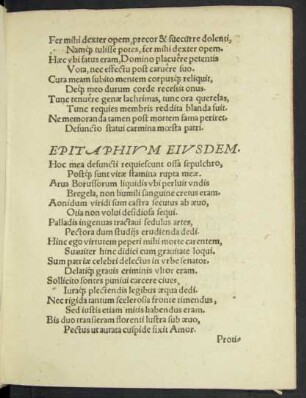 Fer mihi dexter opem, precor & succurre dolenti,
Namq; tulisse potes, fer mihi dexter opem.
Hæc vbi fatus eram, Domino placuêre petentis
Vota, nec effectu post caruêre suo.
Cura meam subito mentem corpusq; reliquit,
Deq; meo durum corde recessit onus.
Tunc tenuêre genæ lachrimas, tunc ora querelas,
Tunc requies membris reddita blanda fuit.
Ne memoranda tamen post mortem fama periret.
Defuncto statui carmina mœsta patri.
EPITAPHIVM EIVSDEM.
Hoc mea defuncti requiescunt ossa sepulchro,
Postq; sunt vitæ stamina rupta meæ.
Arua Borussorum liquidis vbi perluit vndis
Bregela, non humili sanguine cretus eram.
Aonidum viridi sum castra secutus ab æuo,
Otia non volui desidiosa sequi.
Palladis ingenuas tractaui sedulus artes,
Pectora dum studijs erudienda dedi.
Hinc ego virtutem peperi mihi morte carentem,
Suauiter hinc didici cum grauitate loqui.
Sum patriæ celebri delectus in vrbe senator.
Delatiq; grauis criminis vltor eram.
Sollicito sontes puniui carcere ciues,
Iuraq; plectendis legibus æqua dedi.
Nec rigida tantum scelerosa fronte timendus,
Sed iustis etiam mitis habendus eram.
Bis duo transieram florenti lustra sub æuo,
Pectus vt aurata cuspide fixit Amor.
Proti-